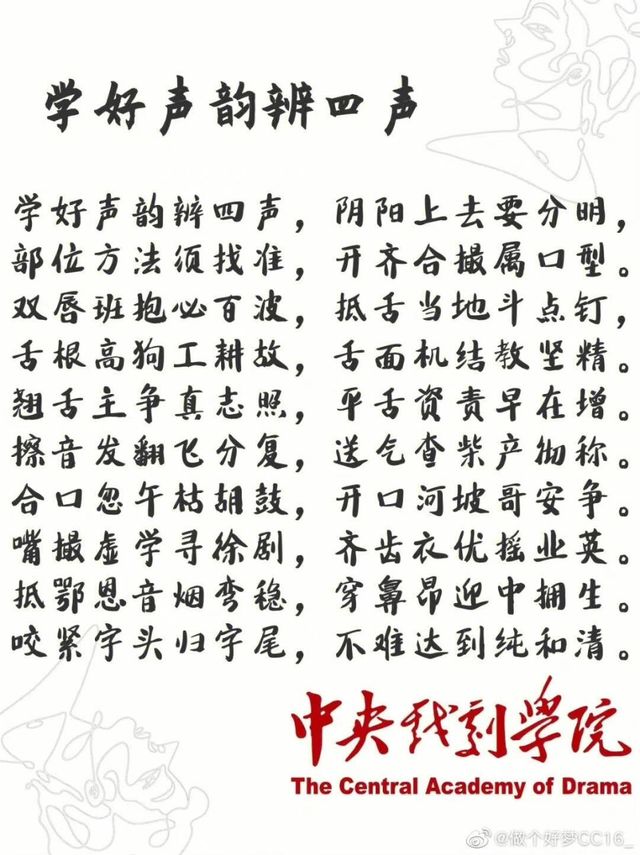 学好声韵辨四声
学好声韵辨四声，阴阳上去要分明，
部位方法须找准，开齐合撮属口型。
双唇班抱必百波，抵舌当地斗点钉，
舌根高狗工耕故，舌面机结教坚精。
翘舌主争真志照，平舌资责早在增。
擦音发翻飞分复，送气查柴产彻称。
合口忽午枯胡鼓，开口河坡哥安争。
嘴撮虚学寻徐剧，齐齿衣优摇业英。
抵鄂恩音烟弯稳，穿鼻昂迎中拥生。
咬紧字头归字尾，不难达到纯和清。
中央戏剧学院
The Central Academy of Drama
@做个好梦CC16_